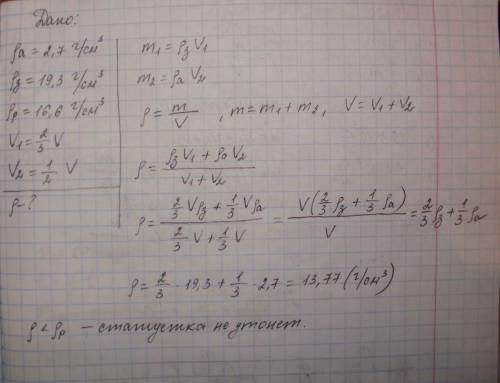 Дано:
ρа = 2,7 г/см³
ρз = 19,3 г/см³
ρр = 16,6 г/см³
V₁ = 2/3 V
V₂ = 1/2 V
ρ - ?
m₁ = ρз V₁
m₂ = ρа V₂
ρ = m/V , m = m₁ + m₂ , V = V₁ + V₂
ρ = (ρз V₁ + ρа V₂)/(V₁ + V₂)
ρ = (2/3 Vρз + 1/3 Vρа)/(2/3 V + 1/3 V) = V(2/3 ρз + 1/3 ρа)/V = 2/3 ρз + 1/3 ρа
ρ = 2/3 · 19,3 + 1/3 · 2,7 = 13,77 (г/см³)
ρ < ρр – статуэтка не утонет.